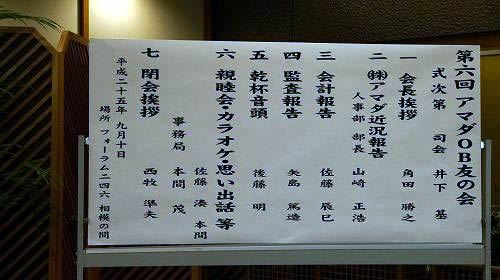 第六回 アマダOB友の会
式次第 司会 井下 基
一 会長挨拶 角田 勝之
二 ㈱アマダ近況報告
人事部 部長 山崎 正浩
三 会計報告 佐藤 辰巳
四 監査報告 矢島 篤造
五 乾杯音頭 後藤 明
六 親睦会・カラオケ・思い出話 等
佐藤 湊 本間
事務局 本間 茂
七 閉会挨拶 西牧 準夫
平成二十五年 九月十日
場所 フォーラム二四六 相模の間